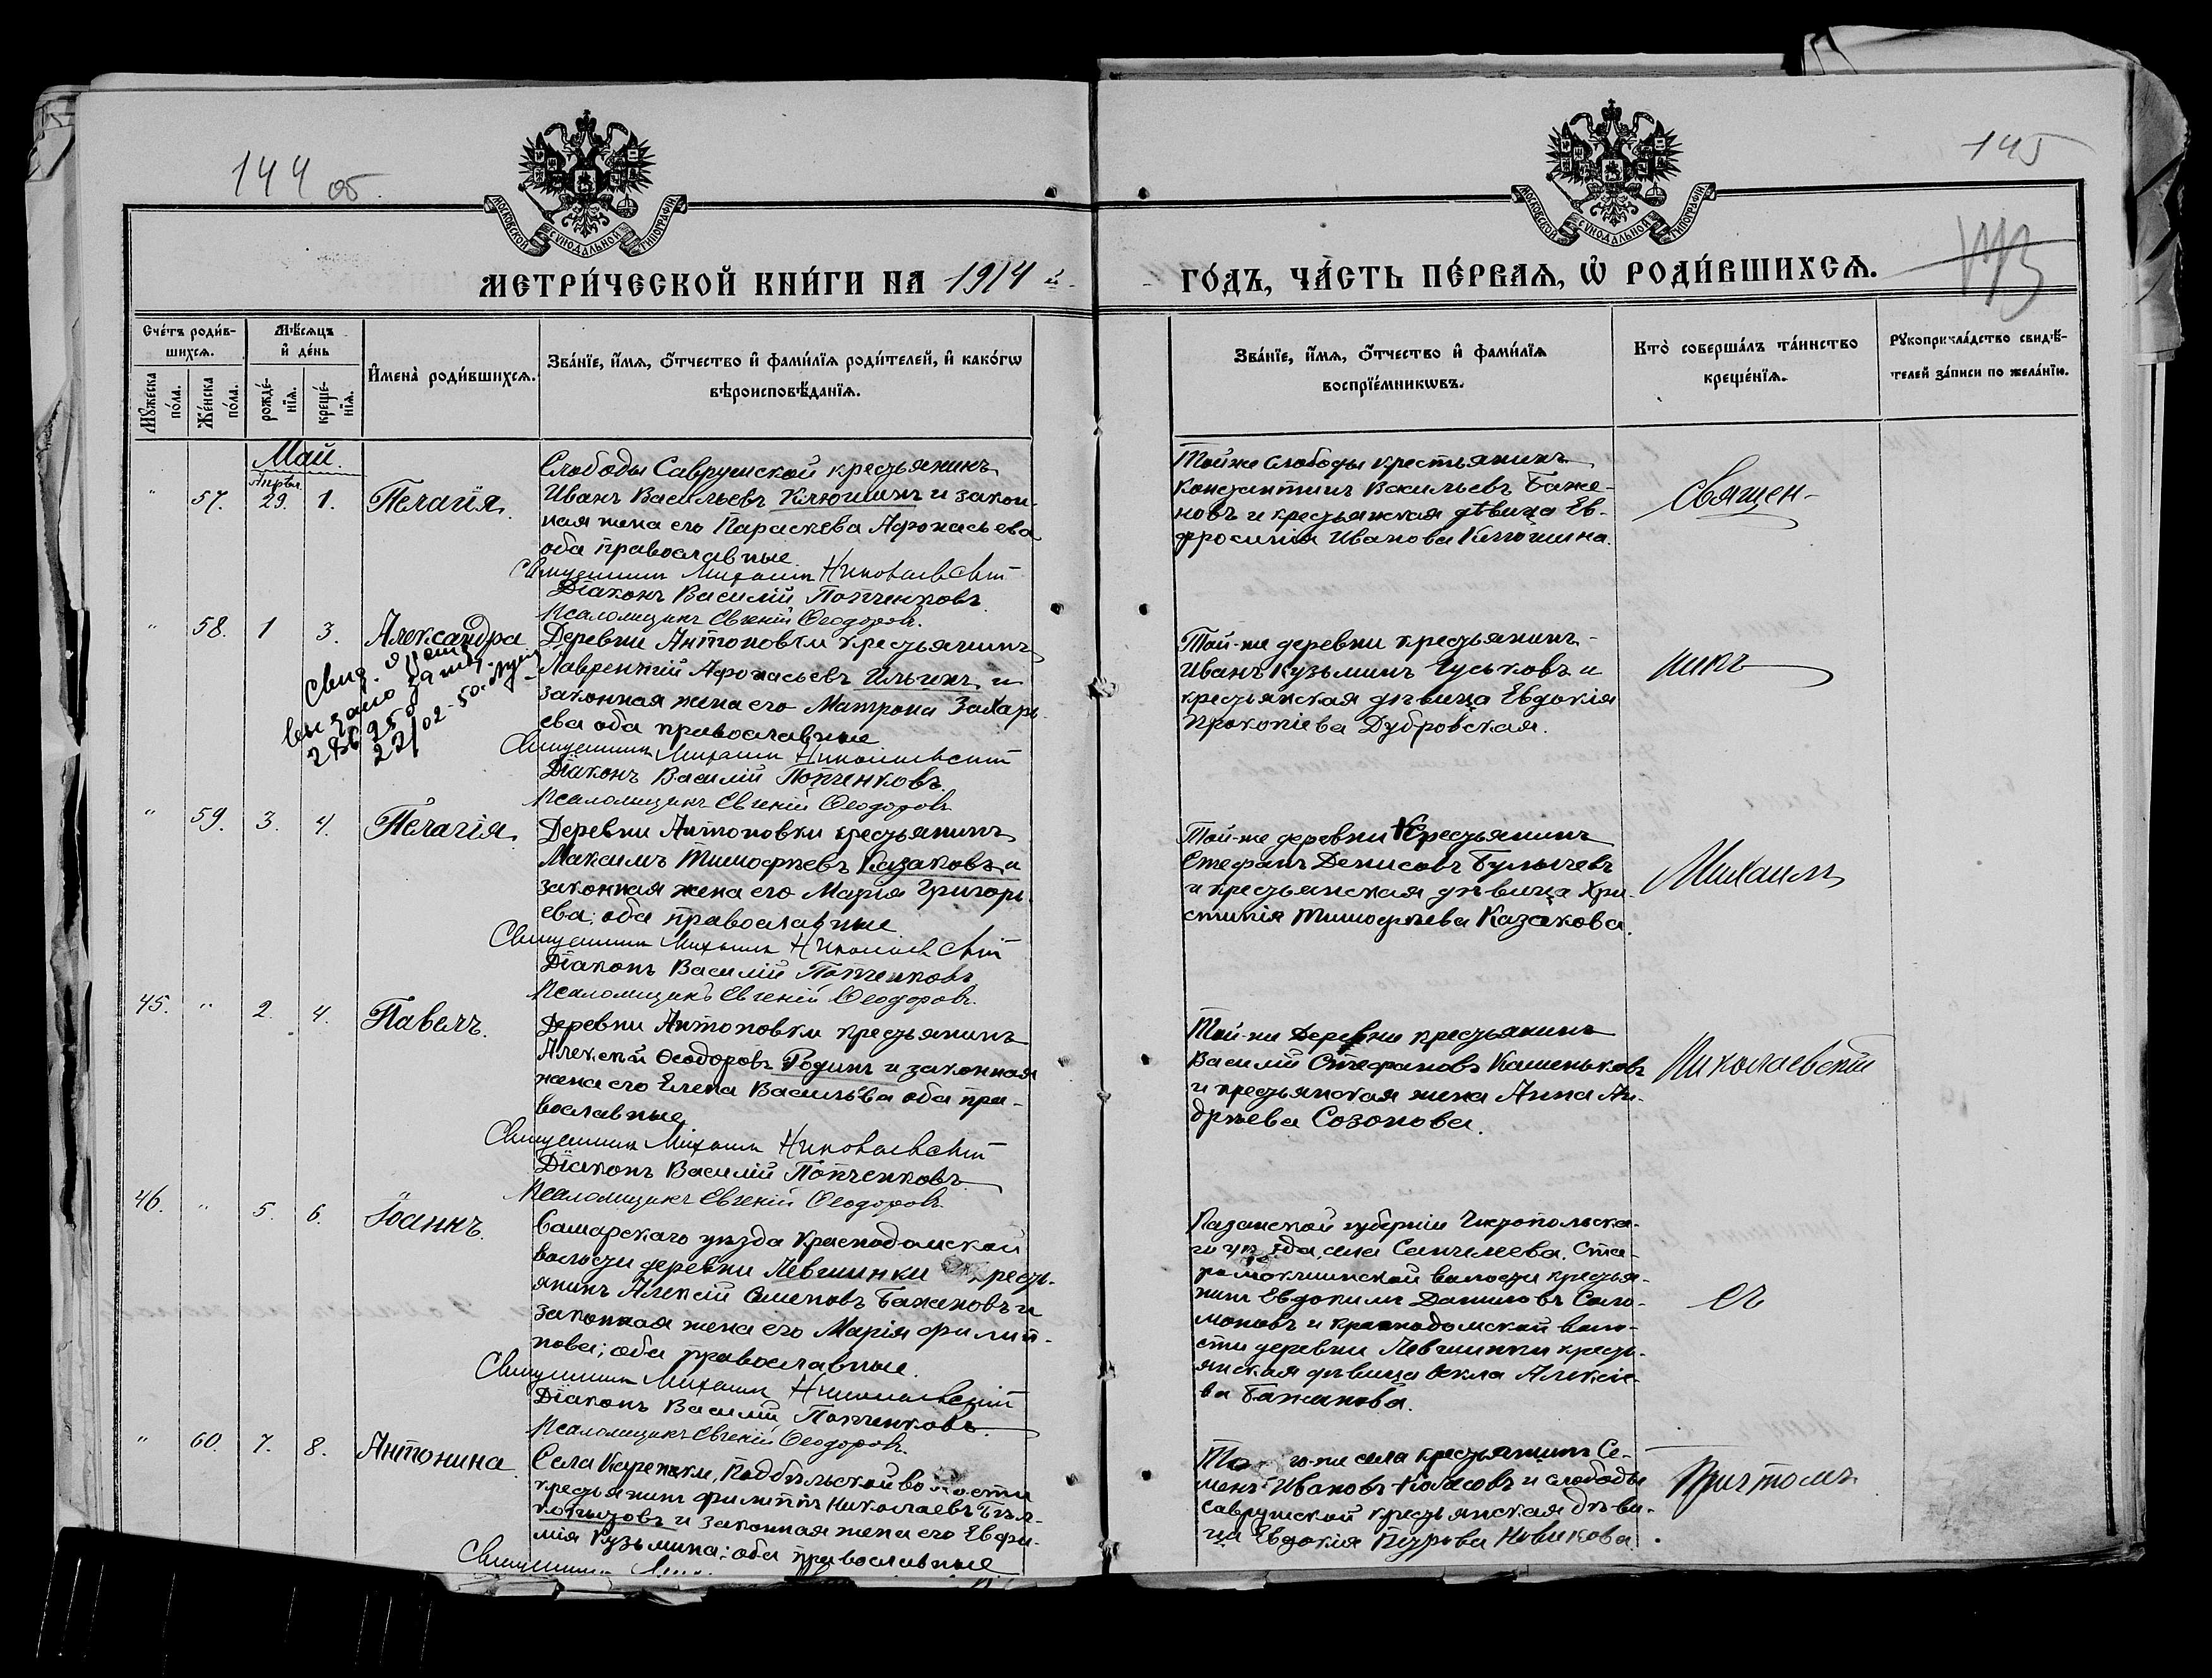 144 об.
145
МОСКОВСКОЙ СѴНОДАЛЬНОЙ ТИПОГРАФІИ
МОСКОВСКОЙ СѴНОДАЛЬНОЙ ТИПОГРАФІИ
МЕТРИ́ЧЕСКОЙ КНИ́ГИ НА 1914 й
ГО́ДЪ, ЧА́СТЬ ПЕ́РВАѦ, Ѡ҆ РОДИ́ВШИХСѦ.
Сче́тъ роди́в-
шихсѧ.
Мꙋ́жеска
по́ла.
Же́нска
по́ла.
Мѣ́сѧцъ
и҆ де́нь
рожде́-
нїѧ.
креще́-
нїѧ.
И҆мена̀ роди́вшихсѧ.
Зва́нїе, и҆́мѧ, ѻ҆́тчество и҆ фами́лїѧ роди́телей, и҆ како́гѡ
вѣроисповѣ́данїѧ.
Зва́нїе, и҆́мѧ, ѻ҆́тчество и҆ фами́лїѧ
воспрїе́мникѡвъ.
Кто̀ соверша́лъ та́инство
креще́нїѧ.
Рꙋкоприкла́дство свидѣ́-
телей за́писи по жела́нїю.
Май.
" 57. Апрѣл. 29. 1. Пелагія.
Слободы Саврушской крестьянинъ
Иванъ Васильевъ Клюшинъ и закон-
ная жена его Параскева Афонасьева
оба православные.
Священникъ Михаилъ Николаевскій
Діаконъ Василій Попченковъ.
Псаломщикъ Евгеній Ѳеодоровъ.
Тойже слободы крестьянинъ
Константинъ Васильевъ Баже-
новъ и крестьянская дѣвица Ев-
фросинія Иванова Клюшина.
Священ-
" 58. 1 3. Александра
Свид.
выдано
Деревни Антоновки крестьянинъ
Лаврентій Афонасьевъ Ильинъ и
законная жена его Матрона Захарь-
ева оба православные
Священникъ Михаилъ Николаевскій
Діаконъ Василій Попченковъ.
Псаломщикъ Евгеній Ѳеодоровъ
Той-же деревни крестьянинъ
Иванъ Кузьминъ Гуськовъ и
крестьянская дѣвица Евдокія
Прокопіева Дубровская.
никъ
" 59. 3. 4. Пелагія.
Деревни Антоновки крестьянинъ
Максимъ Тимофѣевъ Казаковъ и
законная жена его Марія Григорь-
ева; оба православные
Священникъ Михаилъ Николаевскій
Діаконъ Василій Попченковъ
Псаломщикъ Евгеній Ѳеодоровъ.
Той-же деревни Крестьянинъ
Стефанъ Денисовъ Булычевъ
и крестьянская дѣвица Хри-
стинія Тимофѣева Казакова.
Михаилъ
45. " 2. 4. Павелъ.
Деревни Антоновки крестьянинъ
Алексѣй Ѳеодоровъ Родинъ и законная
жена его Елена Васильева оба пра-
вославные
Священникъ Михаилъ Николаевскій
Діаконъ Василій Попченковъ
Псаломщикъ Евгеній Ѳеодоровъ
Той-же Деревни крестьянинъ
Василій Стефановъ Каменьковъ
и крестьянская жена Анна Ан-
дрѣева Созонова.
Николаевскій
46. " 5. 6. Іоаннъ.
Самарскаго уѣзда Красподомской
волости деревни Левшинки кресть-
янинъ Алексій Семеновъ Бажановъ и
законная жена его Марія Филип-
пова; оба православные.
Священникъ Михаилъ Николаевскій
Діаконъ Василій Попченковъ.
Псаломщикъ Евгеній Ѳеодоровъ.
Казанской губерніи Чистопольска-
го уѣзда, села Старо-
волости крестья-
нинъ Евдокимъ Даниловъ Соло-
моновъ и Красподомской воло-
сти деревни Левшинки кресть-
янская дѣвица Ѳекла Алексіе-
ва Бажанова.
съ
" 60. 7. 8. Антонина.
Села Подбѣльской волости
крестьянинъ Филиппъ Николаевъ Бѣл-
и законная жена его Евфи-
мія Кузьмина; оба православные
Священникъ
То го-же села крестьянинъ Се-
менъ Ивановъ Колесовъ и слободы
Саврушской крестьянская дѣви-
ца Евдокія Петрова Новикова.
Причтомъ